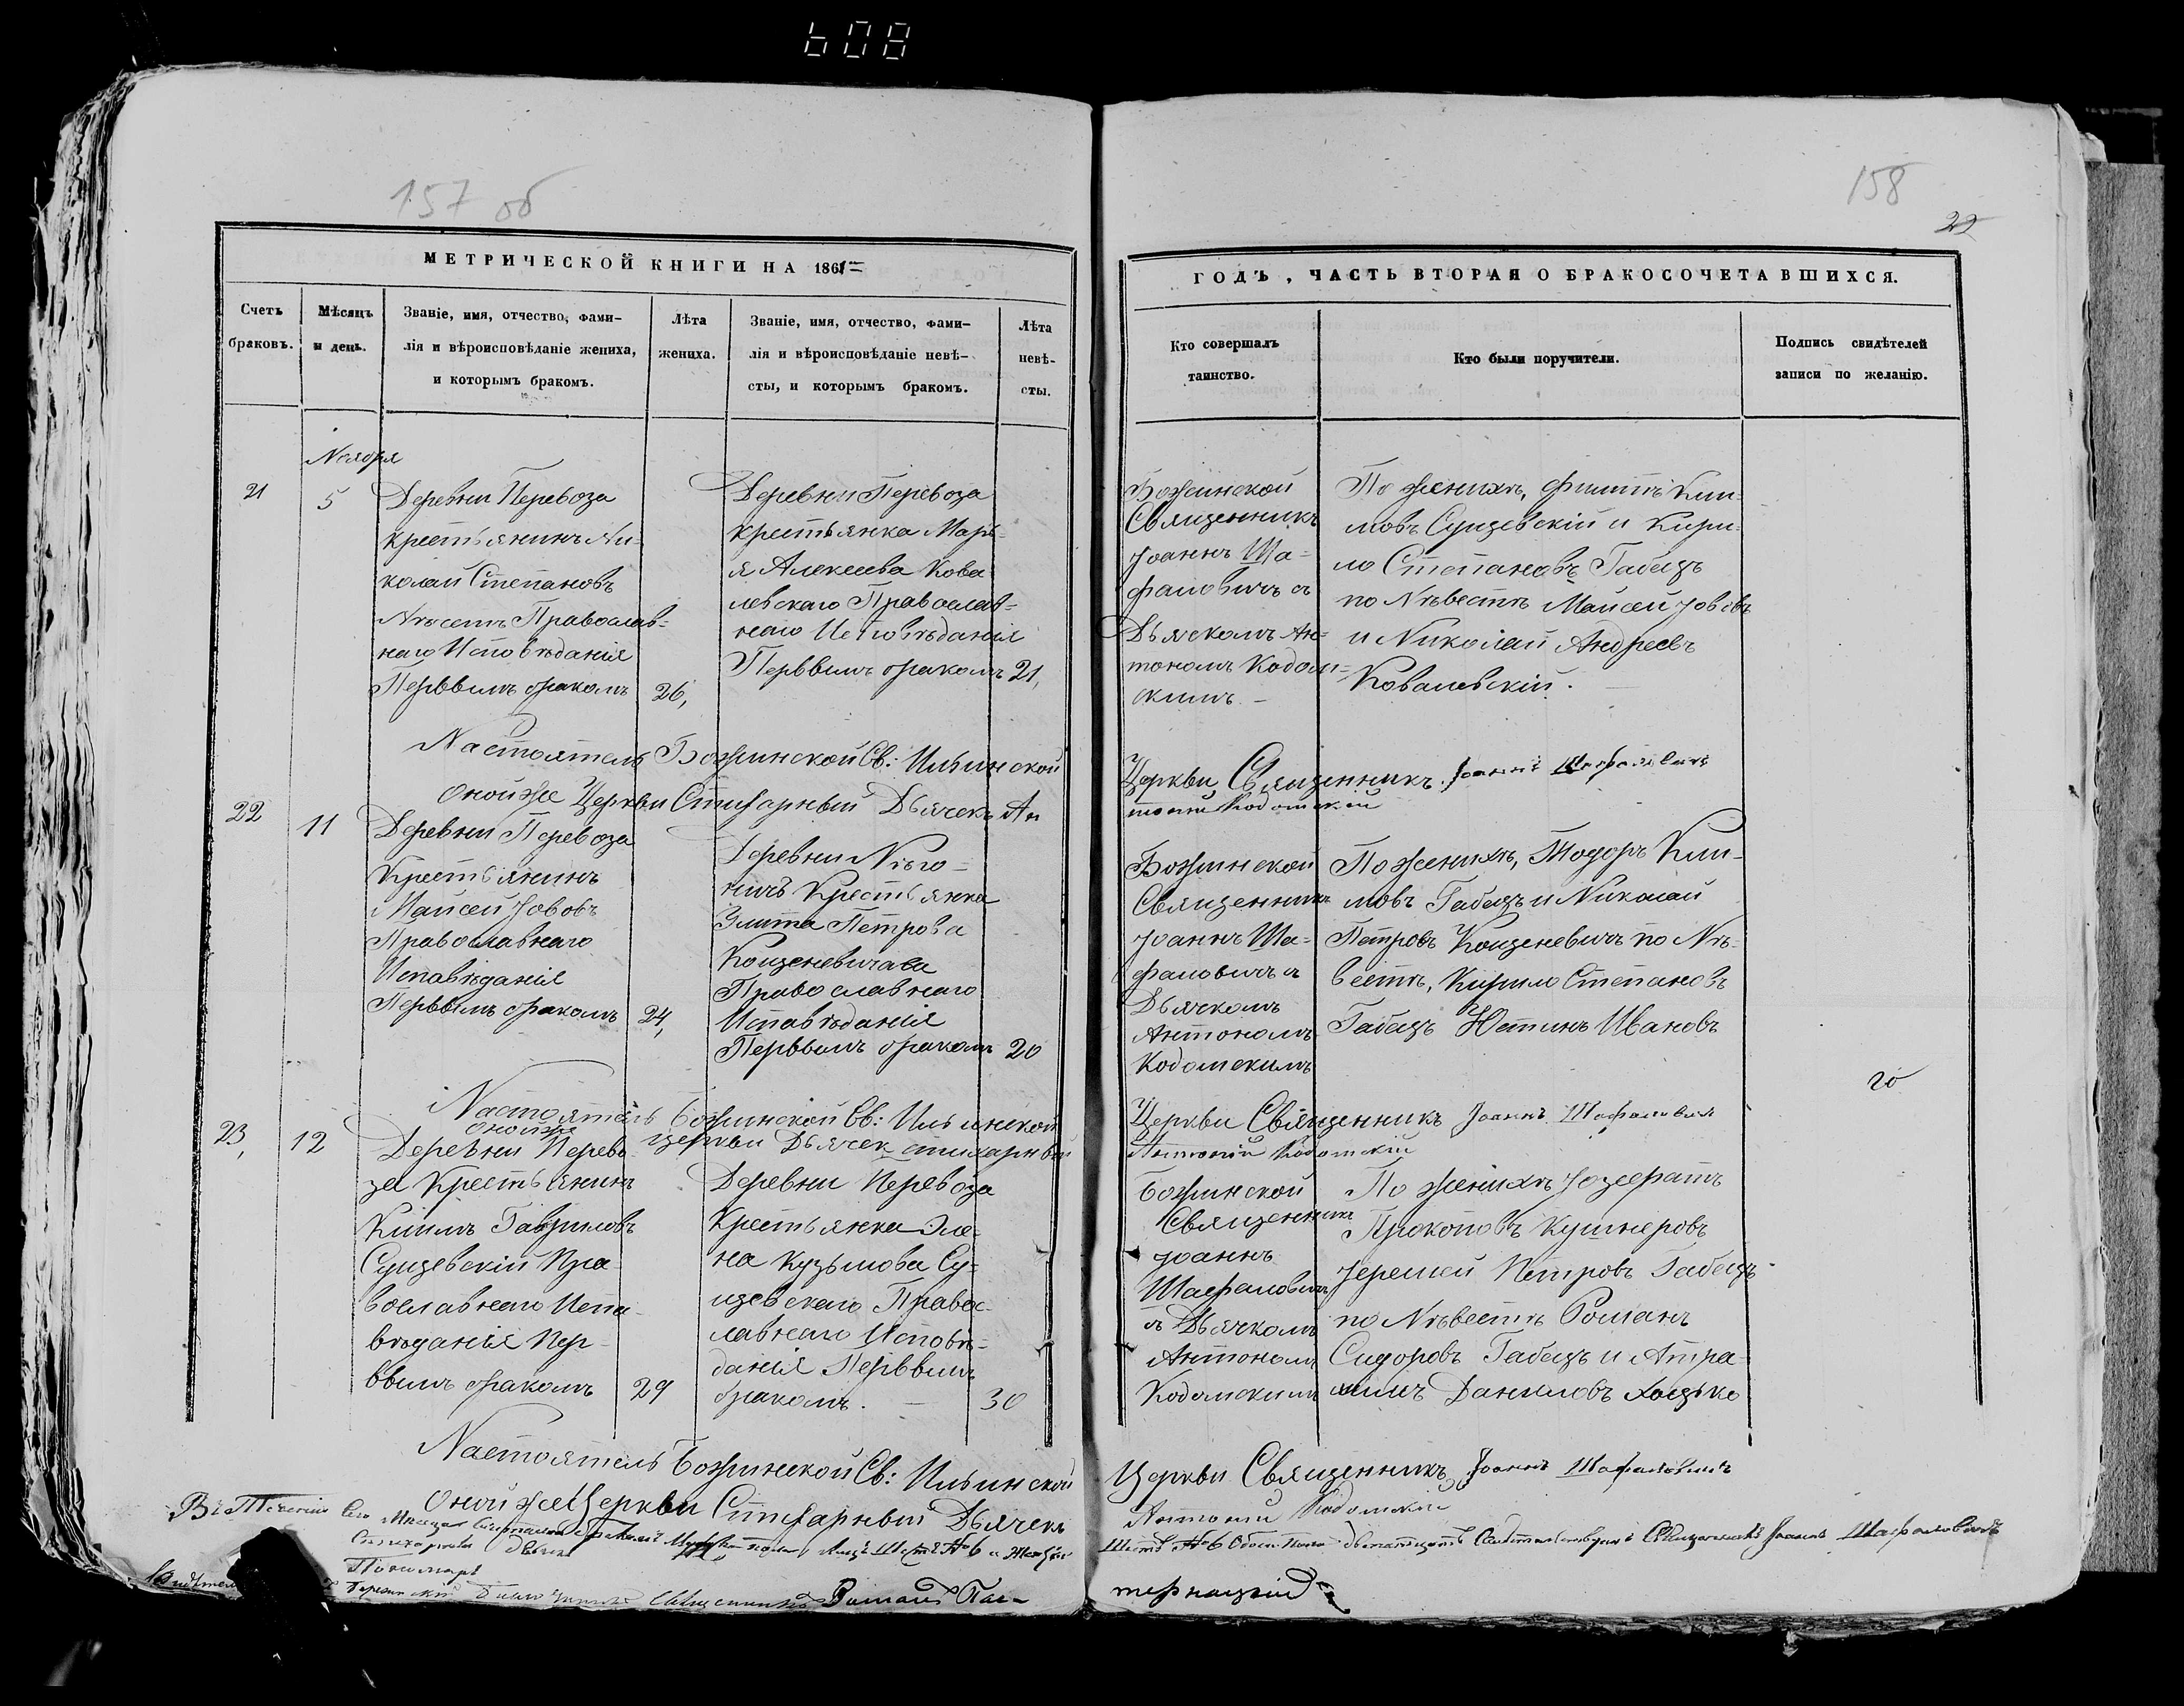 608
157 об
158
22
МЕТРИЧЕСКОЙ КНИГИ НА 1861
ГОДЪ, ЧАСТЬ ВТОРАЯ О БРАКОСОЧЕТАВШИХСЯ.
Счетъ браковъ.
Мѣсяцъ и день.
Званіе, имя, отчество, фами-
лія и вѣроисповѣданіе жениха,
и которымъ бракомъ.
Лѣта
жениха.
Званіе, имя, отчество, фами-
лія и вѣроисповѣданіе невѣ-
сты, и которымъ бракомъ.
Лѣта
невѣ-
сты.
Кто совершалъ
таинство.
Кто были поручители.
Подпись свидѣтелей
записи по желанію.
Ноября
21
5
Деревни Перевоза
крестьянинъ Ни-
колай Степановъ
Православ-
наго Исповѣданія
Перввымъ бракомъ
26,
Деревни Перевоза
крестьянка Марь-
я Алексеева Кова
левскаго Православ-
наго Исповѣданія
Перввымъ бракомъ
21,
Божинской
Священникъ
Іоаннъ Ша-
фаловичъ с
Дьячкомъ Ан-
тономъ Кодом-
скимъ
По женихѣ, Филитъ Кли-
мовъ Сущевскій и Кири-
ло Степановъ Габецъ
по Невѣстѣ Майсей Іововъ
и Николай Андреевъ
Ковалевскій.
Настоятель Божинской Св: Ильинской Церкви Священникъ Іоаннъ Шафаловичъ
Оной же Церкви Стихарный Дьячекъ Ан
тоній Кодомский
22
11
Деревни Перевоза
Крестьянинъ
Майсей Іововъ
Православнаго
Исповѣданія
Перввымъ бракомъ
24,
Деревни Него-
ничъ Крестьянка
Улита Петрова
Православнаго
Исповѣданія
Перввымъ бракомъ
20
Божинской
Священникъ
Іоаннъ Ша-
фаловичъ с
Дьячкомъ
Антономъ
Кодомскимъ
По женихѣ, Тодоръ Кли-
мовъ Габецъ и Николай
Петровъ Кощеневичъ по Не-
вестѣ, Кирило Степановъ
Габецъ Юстинъ Ивановъ
Настоятель Божинской Св: Ильинской Церкви Священникъ Іоаннъ Шафаловичъ
оной же церкви Дьячек стихарный Антоній Кодомскій
23,
12
Деревни Перево-
за Крестьянинъ
Климъ Гавриловъ
Сущевскій Пра-
вославнаго Испо-
вѣданія Пер-
ввымъ бракомъ
29
Деревни Перевоза
Крестьянка Эле-
на Кузьмова Су-
щевскаго Правос-
лавнаго Исповѣ-
данія Перввымъ
бракомъ.
30
Божинской
Священникъ
Іоаннъ
Шафаловичъ
съ Дьячкомъ
Антономъ
Кодомскимъ
По женихѣ Іозефатъ
Прокоповъ Кушнеровъ
Іеремей Петровъ Габецъ
по Невѣстѣ Романъ
Сидоровъ Габецъ и Апра-
химъ Даниловъ
Настоятель Божинской Св: Ильинской Церкви Священникъ Іоаннъ Шафаловичъ
Оной же Церкви Стихарный Дьячекъ
Антоній Кодомскій
Въ Теченіи Сего Месяца
Шесть №6 Обоего Пола двенадцать Священникъ Іоаннъ Шафаловичъ
Пономарь
Священникъ Романъ Пас-
тернацкій